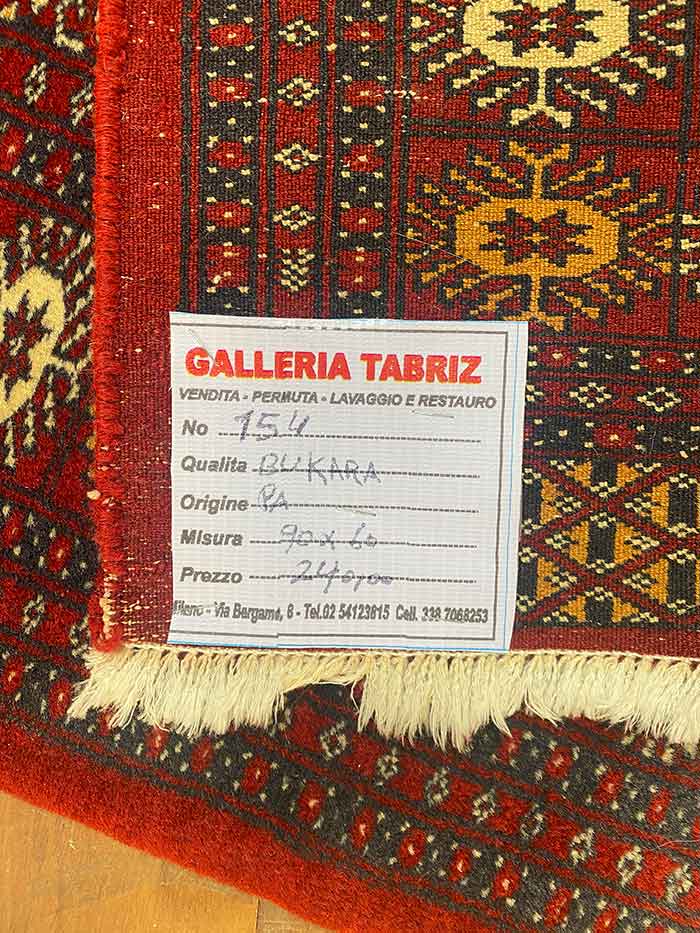 GALLERIA TABRIZ
VENDITA - PERMUTA - LAVAGGIO E RESTAURO
No 154
Qualita BUKARA
Origine PA
Misura 90 x 60
Prezzo 240,00
Milano - Via Bergamo, 8 - Tel.02 54123815 Cell. 338 7068253